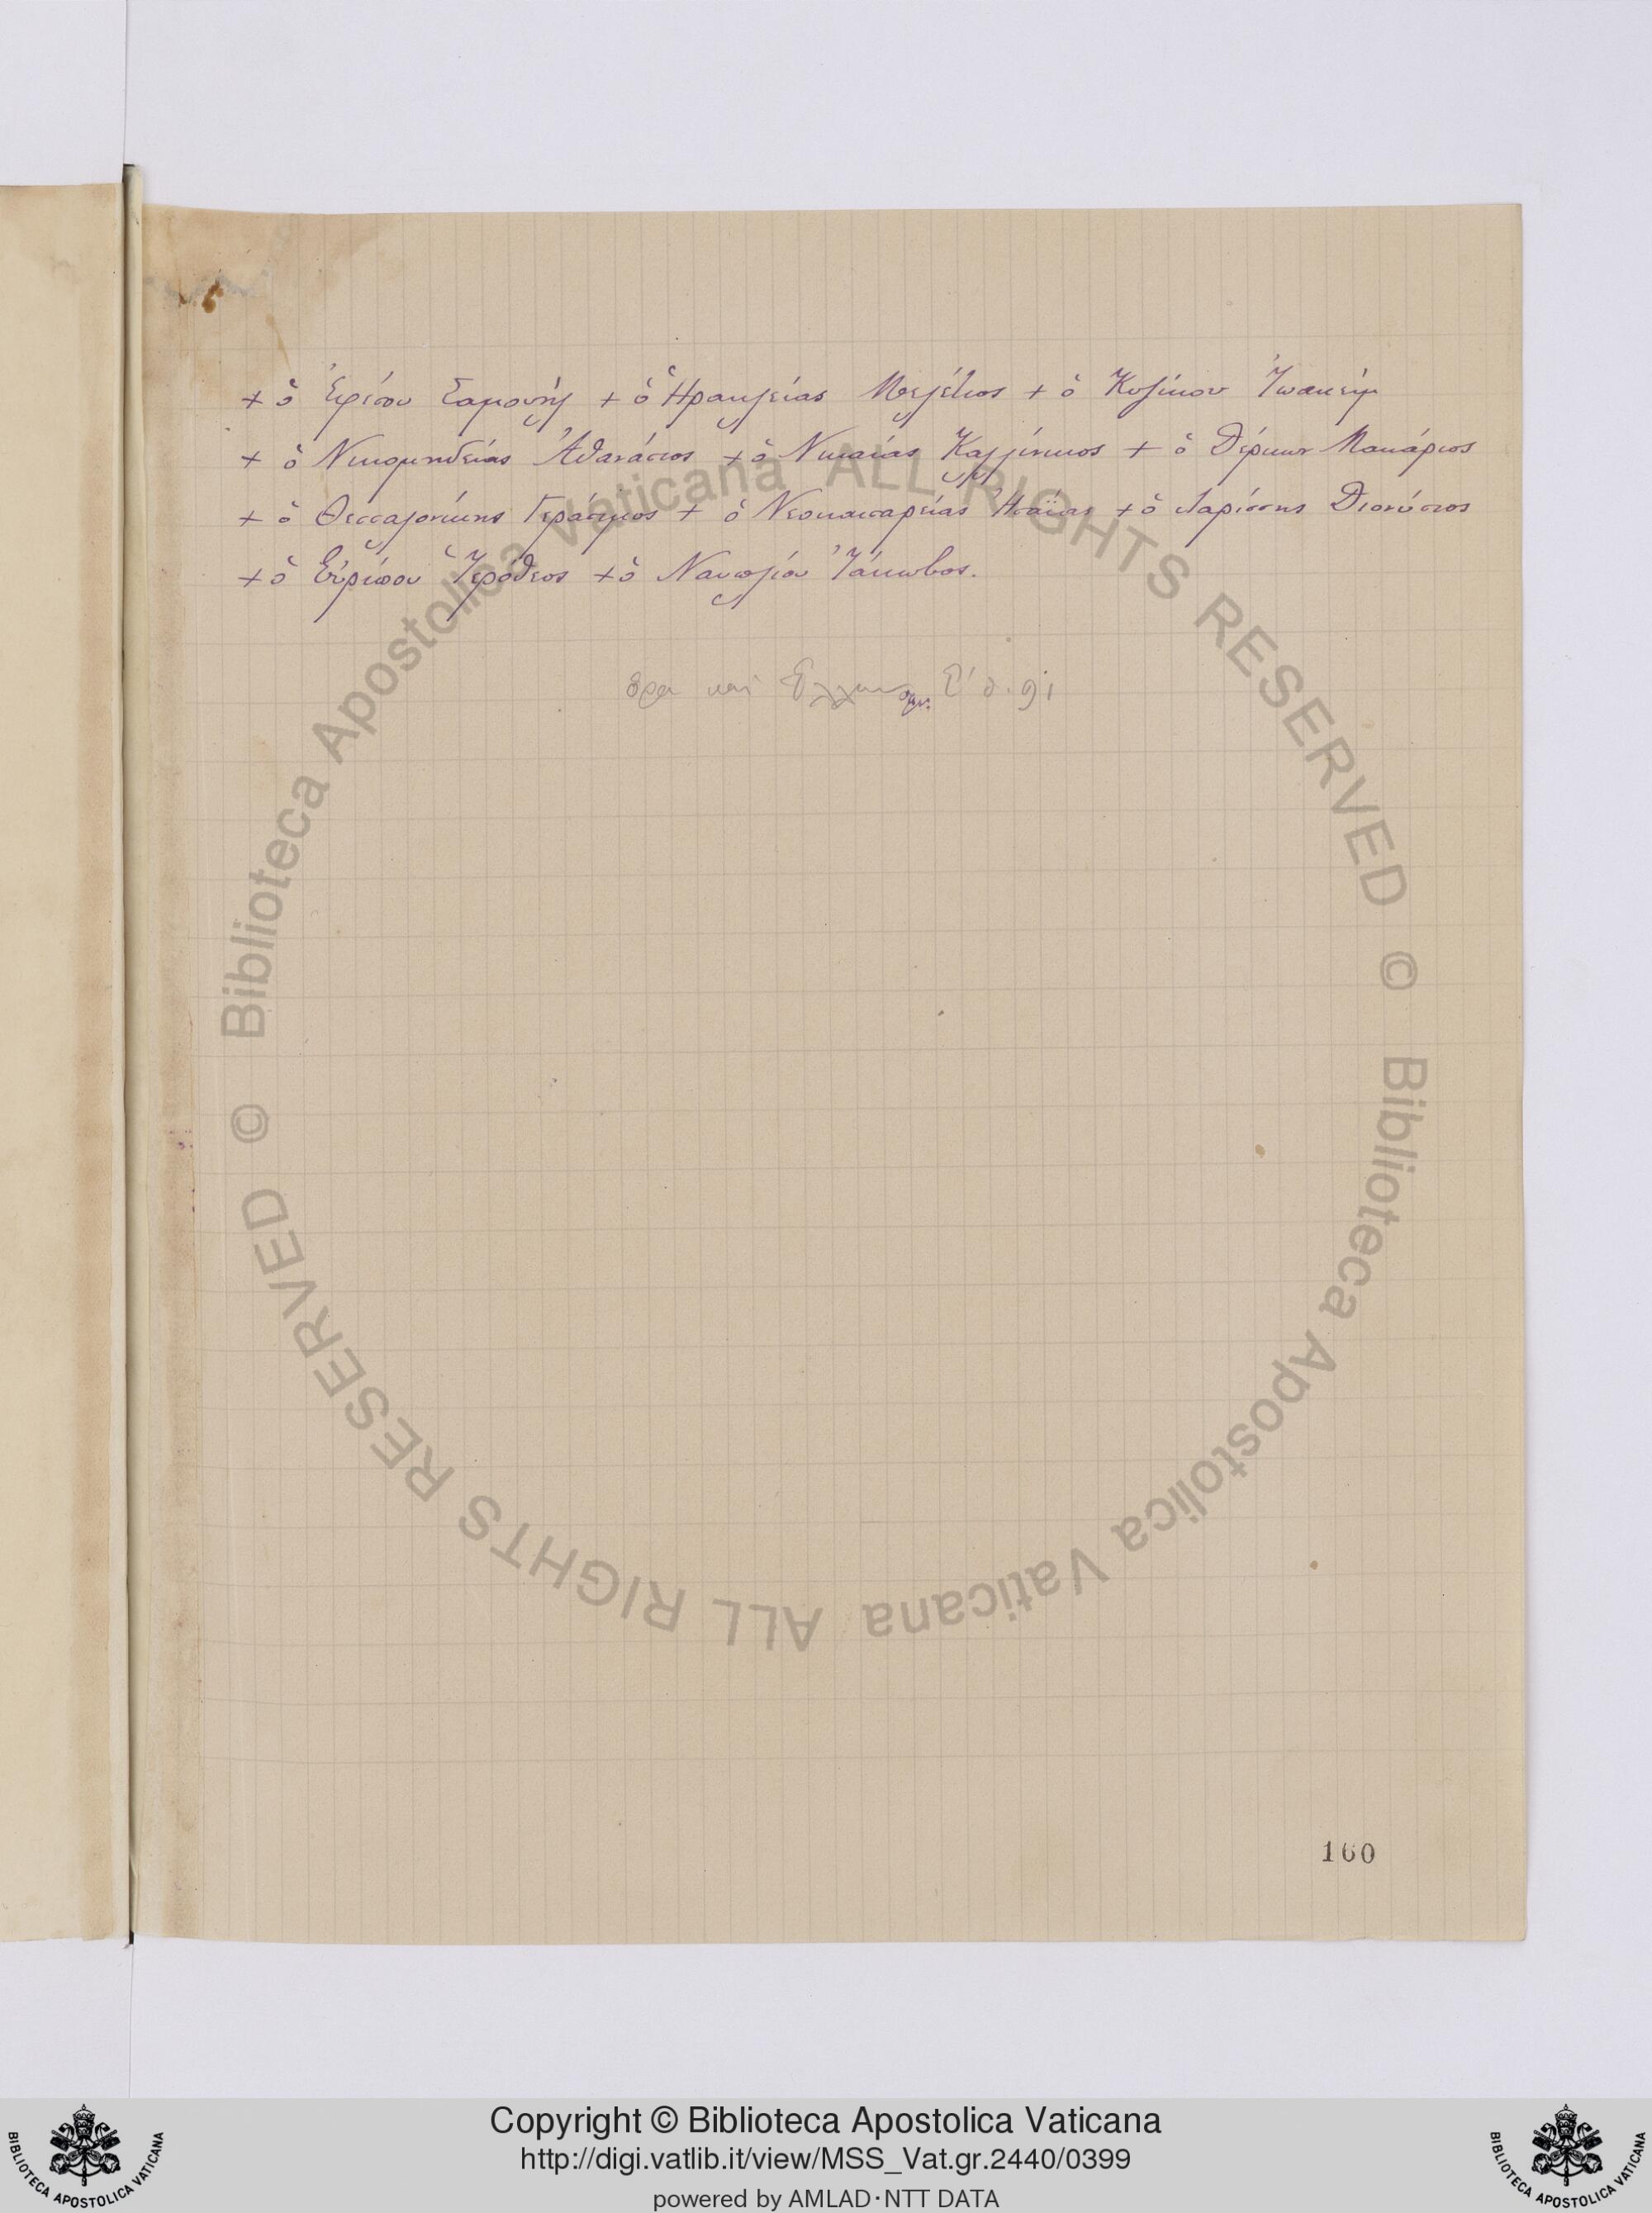 + ὁ Ἐφέσου Σαμουήλ + ὁ Ἡρακλείας Μελέτιος + ὁ Κυζίκου Ἰωακείμ
+ ὁ Νικομηδείας Ἀθανάσιος + ὁ Νικαίας Καλλίνικος + ὁ Δέρκων Μακάριος
+ ὁ Θεσσαλονίκης Γεράσιμος + ὁ Νεοκαισαρείας Ἡσαΐας + ὁ Λαρίσσης Διονύσιος
+ ὁ Εὐρίπου Ἱερόθεος + ὁ Ναυπλίου Ἰάκωβος.
ὅρα καὶ
160
© Biblioteca Apostolica Vaticana ALL RIGHTS RESERVED
© Biblioteca Apostolica Vaticana ALL RIGHTS RESERVED
Copyright © Biblioteca Apostolica Vaticana
http://digi.vatlib.it/view/MSS_Vat.gr.2440/0399
powered by AMLAD·NTT DATA
BIBLIOTECA APOSTOLICA VATICANA
BIBLIOTECA APOSTOLICA VATICANA